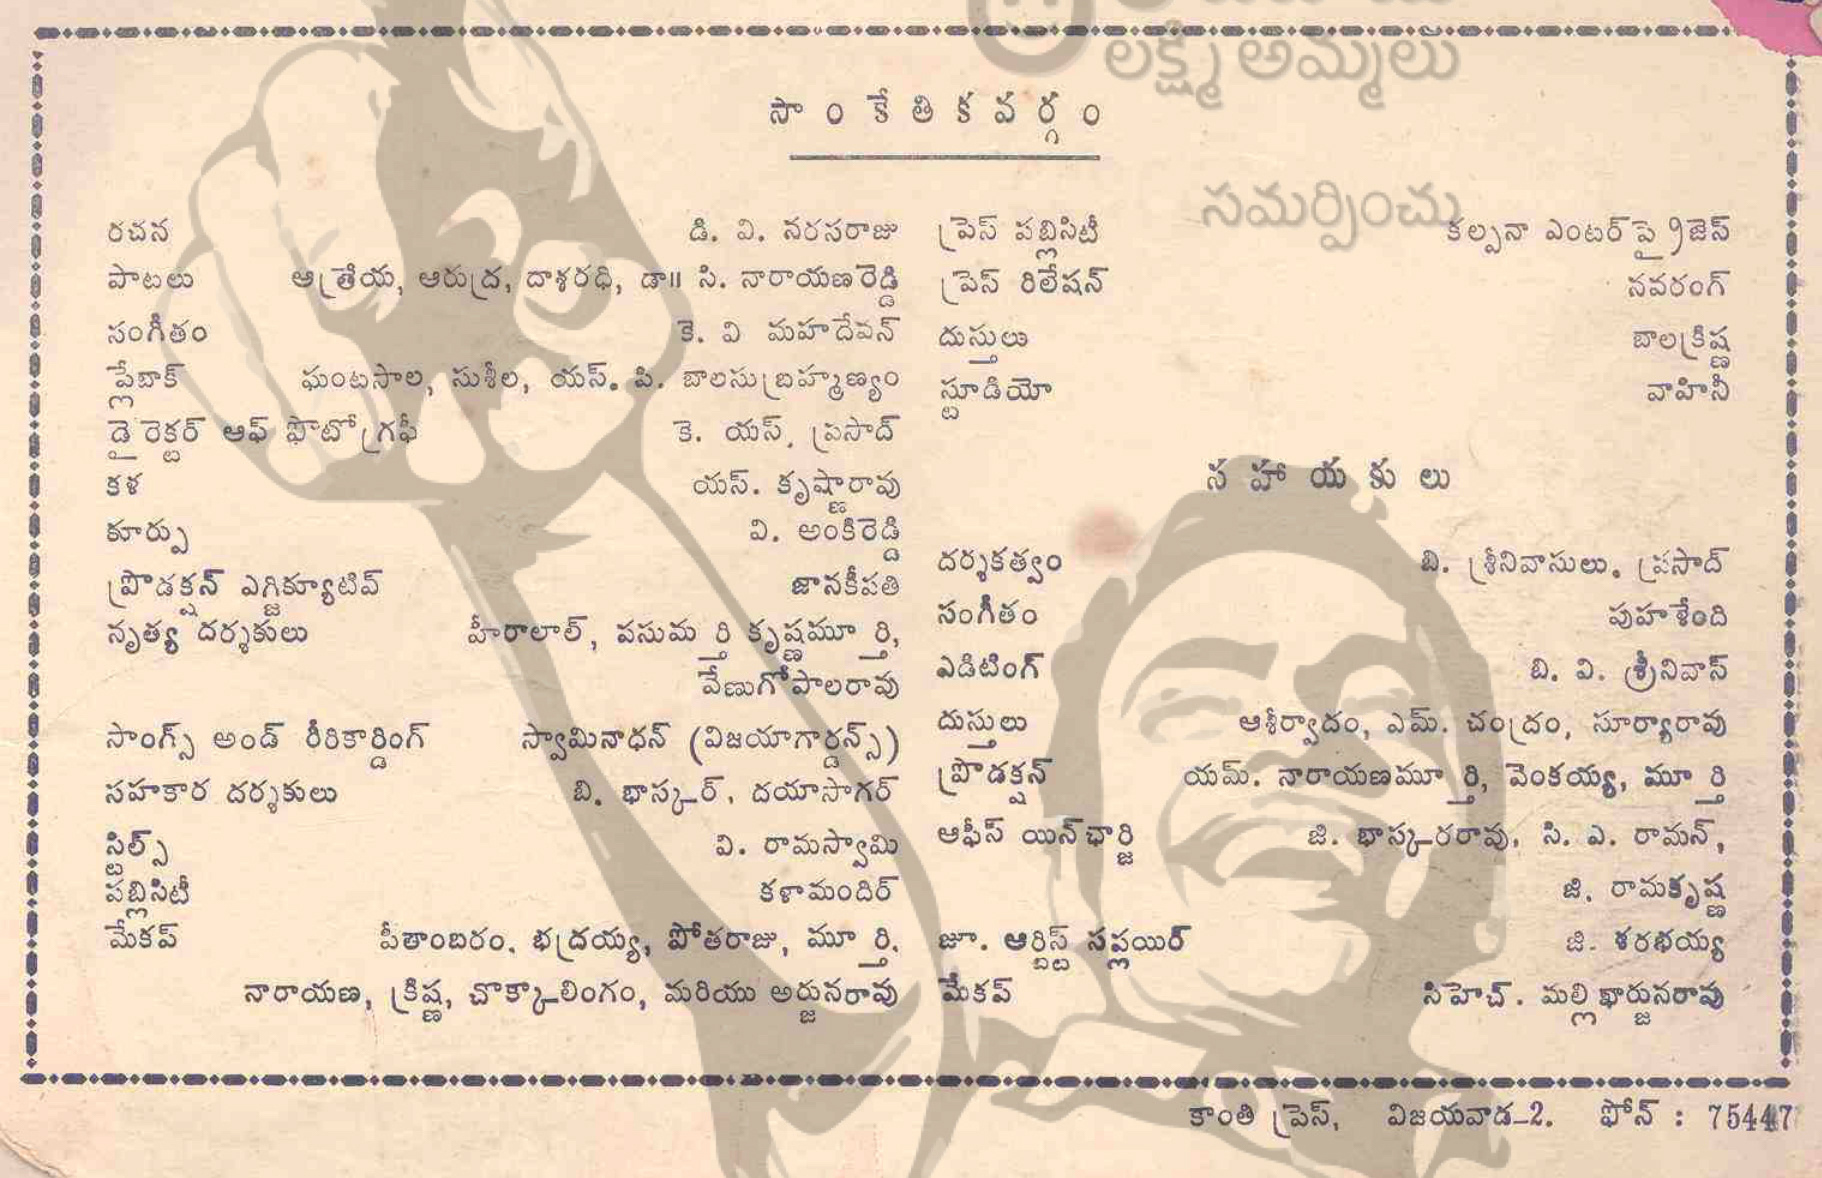 లక్ష్మి అమ్మలు
సాంకేతికవర్గం
సమర్పించు
రచన డి. వి. నరసరాజు
పాటలు ఆత్రేయ, ఆరుద్ర, దాశరధి, డా॥ సి. నారాయణరెడ్డి
సంగీతం కె. వి మహదేవన్
ప్లేబాక్ ఘంటసాల, సుశీల, యస్. పి. బాలసుబ్రహ్మణ్యం
డైరెక్టర్ ఆఫ్ ఫొటోగ్రఫీ కె. యస్. ప్రసాద్
కళ యస్. కృష్ణారావు
కూర్పు వి. అంకిరెడ్డి
ప్రొడక్షన్ ఎగ్జిక్యూటివ్ జానకీపతి
నృత్య దర్శకులు హీరాలాల్, పసుమర్తి కృష్ణమూర్తి,
వేణుగోపాలరావు
సాంగ్స్ అండ్ రీరికార్డింగ్ స్వామినాధన్ (విజయాగార్డన్స్)
సహకార దర్శకులు బి. భాస్కర్, దయాసాగర్
స్టిల్స్ వి. రామస్వామి
పబ్లిసిటీ కళామందిర్
మేకప్ పీతాంబరం, భద్రయ్య, పోతరాజు, మూర్తి,
నారాయణ, క్రిష్ణ, చొక్కాలింగం, మరియు అర్జునరావు
ప్రెస్ పబ్లిసిటీ కల్పనా ఎంటర్‌ప్రైజెస్
ప్రెస్ రిలేషన్ నవరంగ్
దుస్తులు బాలక్రిష్ణ
స్టూడియో వాహినీ
సహాయకులు
దర్శకత్వం బి. శ్రీనివాసులు, ప్రసాద్
సంగీతం పుహళేంది
ఎడిటింగ్ బి. వి. శ్రీనివాస్
దుస్తులు ఆశీర్వాదం, ఎమ్. చంద్రం, సూర్యారావు
ప్రొడక్షన్ యమ్. నారాయణమూర్తి, వెంకయ్య, మూర్తి
ఆఫీస్ యిన్‌ఛార్జి జి. భాస్కరరావు, సి. ఎ. రామన్,
జి. రామకృష్ణ
జూ. ఆర్టిస్ట్ సప్లయిర్ జి. శరభయ్య
మేకప్ సిహెచ్. మల్లిఖార్జునరావు
కాంతి ప్రెస్, విజయవాడ-2. ఫోన్ : 75447